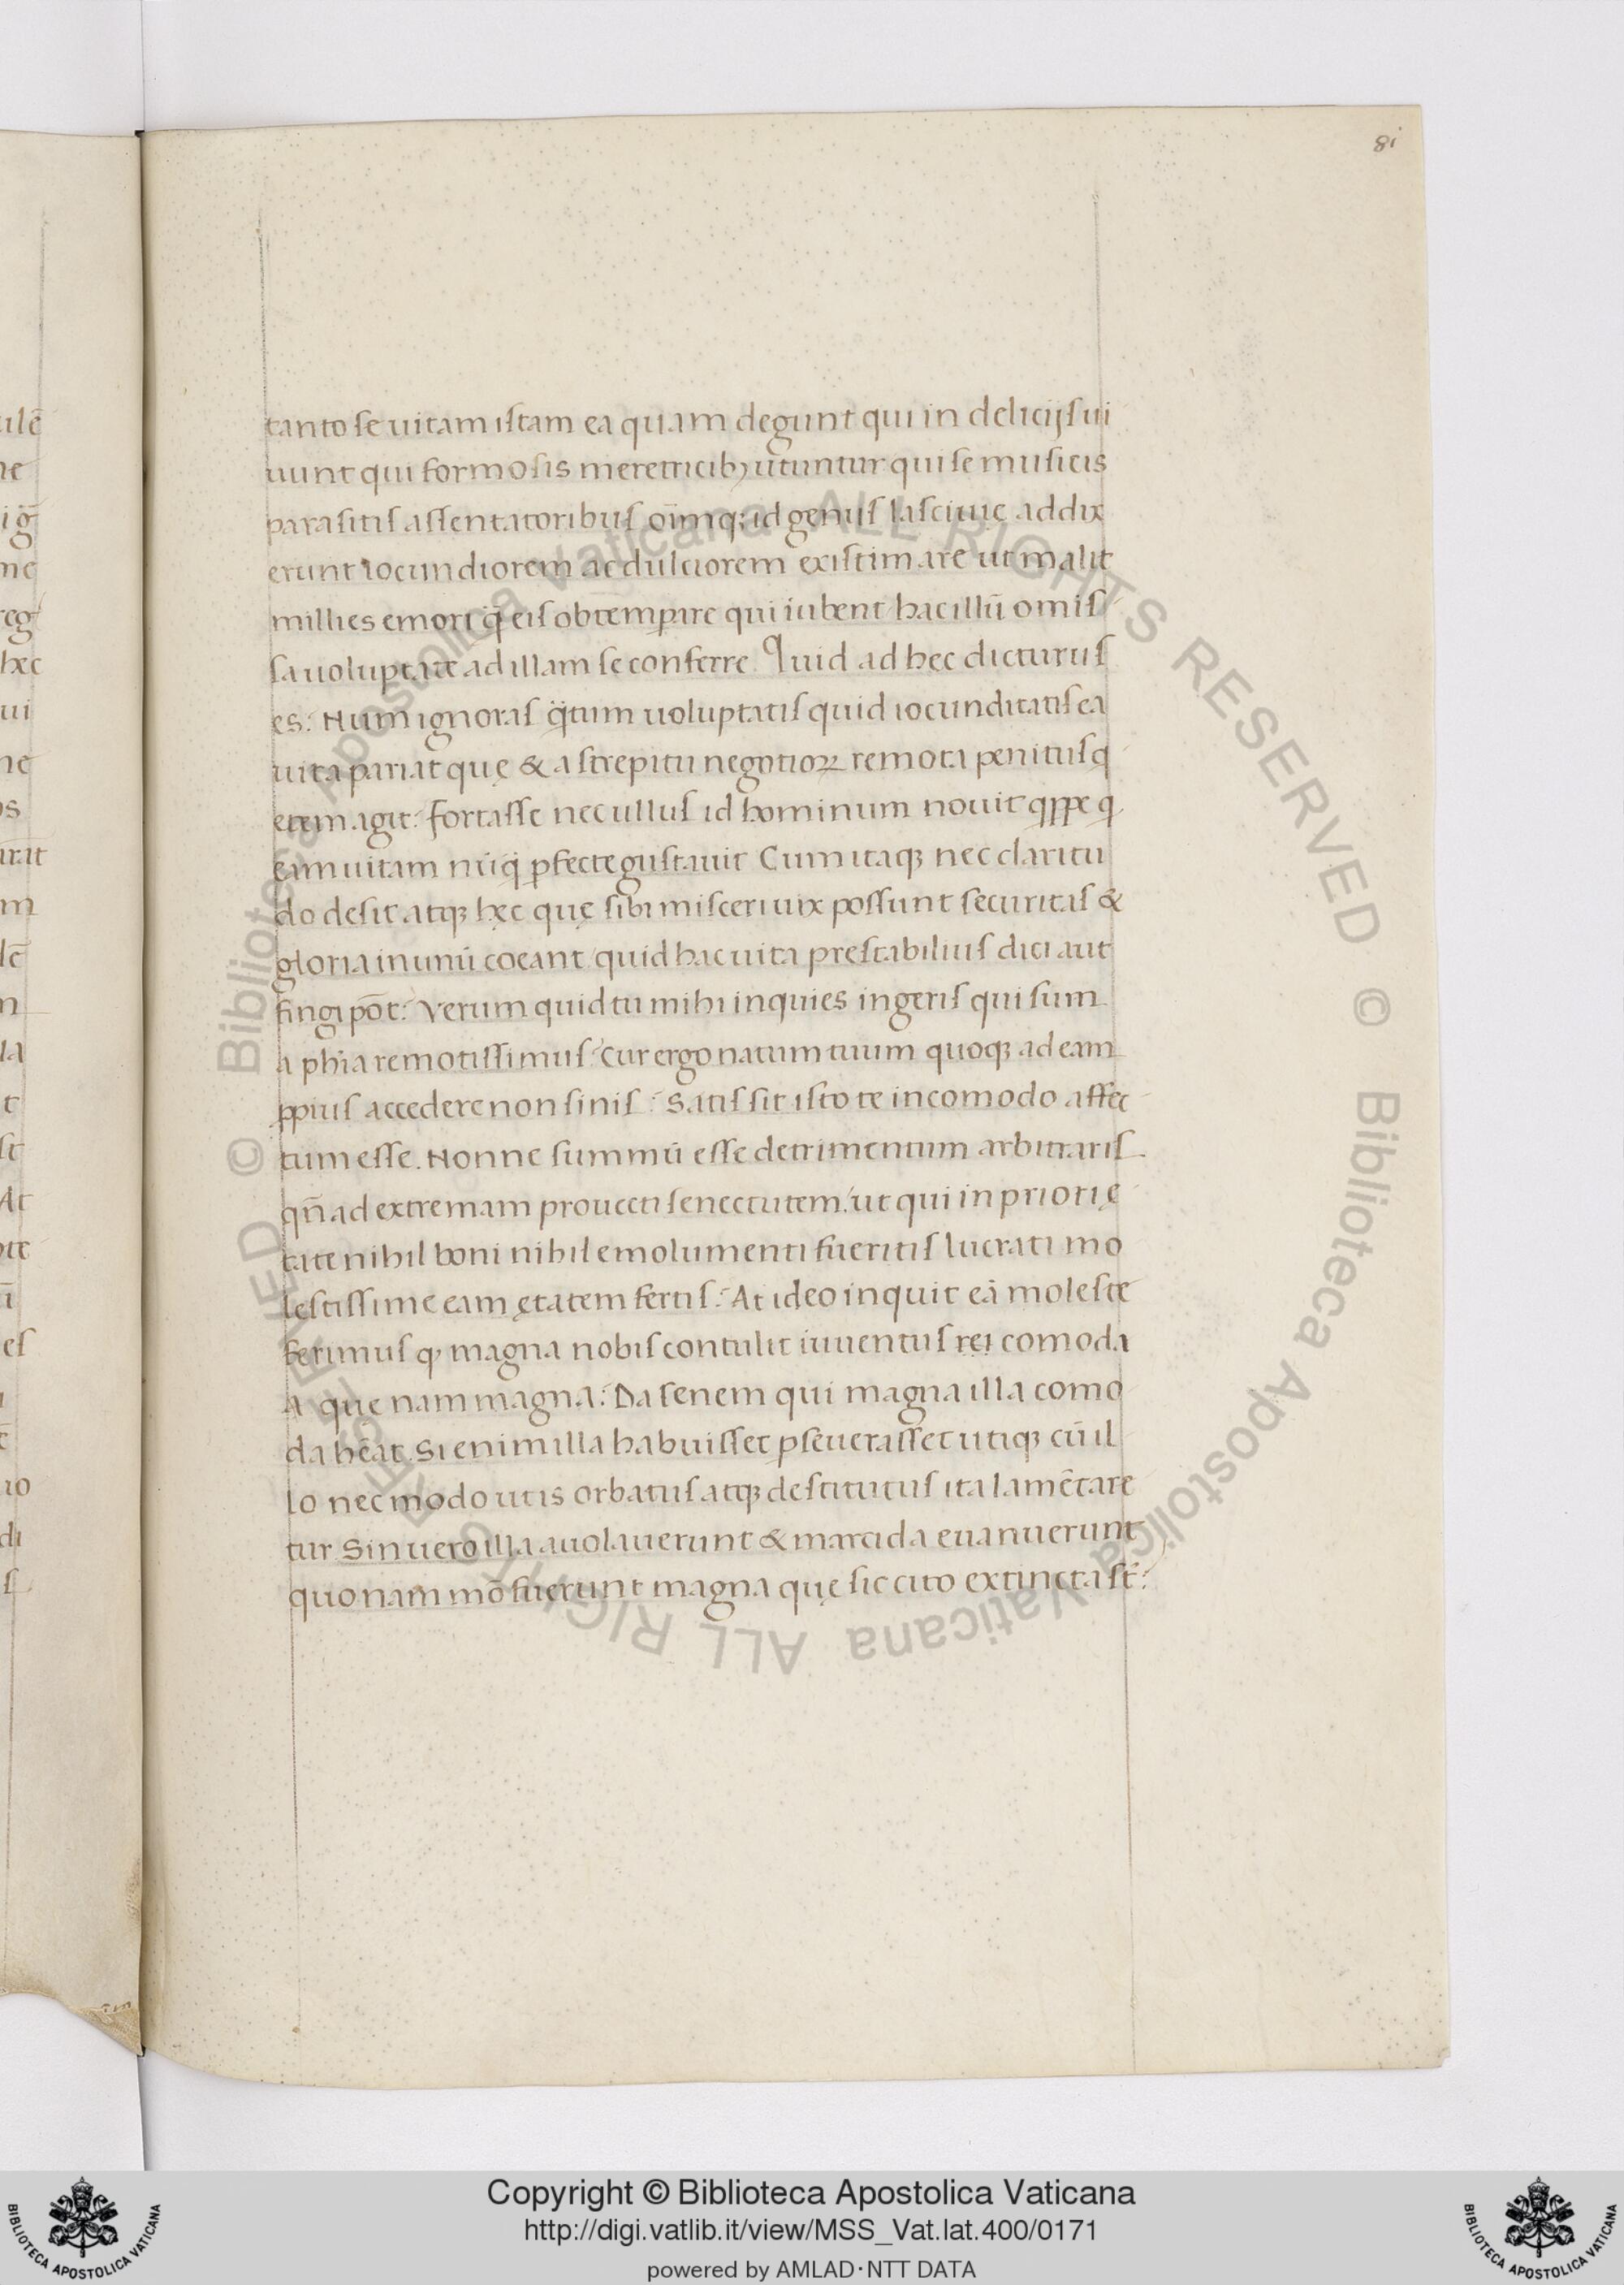 81
tanto se uitam istam ea quam degunt qui in delicijs ui
uunt qui formosis meretricibꝫ utuntur qui se musicis
parasitis assentatoribus oīmq; id genus lasciuie addix
erunt iocundiorem ac dulciorem existimare ut malit
millies emori q̄ eis obtemꝑare qui iubent hac illū omis
sa uoluptate ad illam se conferre. Quid ad hec dicturus
es? Num ignoras q̄tum uoluptatis quid iocunditatis ea
uita pariat quę & a strepitu negotioꝝ remota penitus q̇
etem agit? fortasse nec ullus id hominum nouit qꝓpe q
eam uitam nūq̄ ꝑfecte gustauit Cum itaqꝫ nec claritu
do desit atqꝫ hęc quę sibi misceri uix possunt securitas &
gloria in unū coeant quid hac uita prestabilius dici aut
fingi pōt? Verum quid tu mihi inquies ingeris qui sum
a phīa remotissimus? Cur ergo natum tuum quoqꝫ ad eam
ꝓpius accedere non sinis? Satis sit isto te incomodo affec
tum esse. Nonne summū esse detrimentum arbitraris
qn̄ ad extremam prouecti senectutem? ut qui in priori ę
tate nihil boni nihil emolumenti fueritis lucrati mo
lestissime eam ętatem fertis? At ideo inquit eā moleste
ferimus ꝙ magna nobis contulit iuuentus rei comoda
A que nam magna? Da senem qui magna illa como
da hēat. Si enim illa habuisset ꝑseuerasset utiqꝫ cū il
lo nec modo utis orbatus atqꝫ destitutus ita lamētare
tur Sin uero illa auolauerunt & marcida euanuerunt
quonam mō fuerunt magna quę sic cito extincta st̄?
Copyright © Biblioteca Apostolica Vaticana
http://digi.vatlib.it/view/MSS_Vat.lat.400/0171
powered by AMLAD·NTT DATA